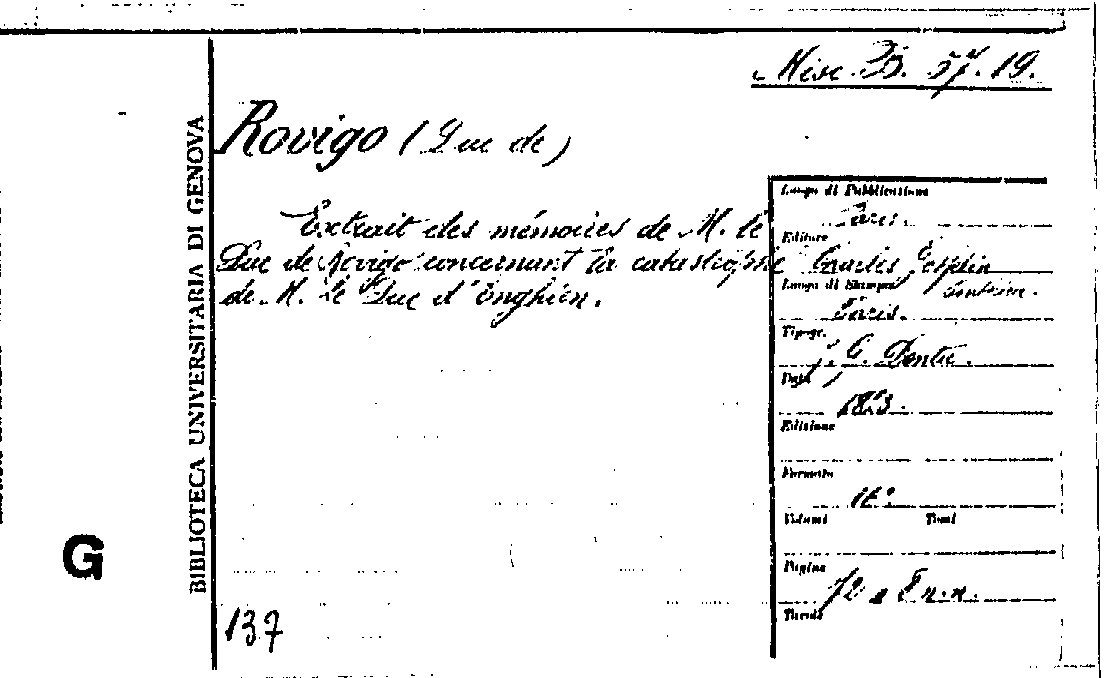 Misc. B. 57. 19.
BIBLIOTECA UNIVERSITARIA DI GENOVA
G
Rovigo (Duc de)
Extrait des mémoires de M. le
Duc de Rovigo concernant la catastrophe
de M. le Duc d'Enghien.
137
Luogo di Pubblicazione
Paris.
Editore
Charles
Luogo di Stampa
Paris.
Tipogr.
J. G. Dentu.
Data
Edizione
Formato
Volumi Tomi
Pagine
72